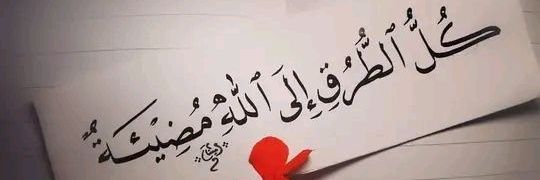 كُلُّ ٱلطُّرُقِ إِلَى ٱللَّهِ مُضِيْئَةٌ